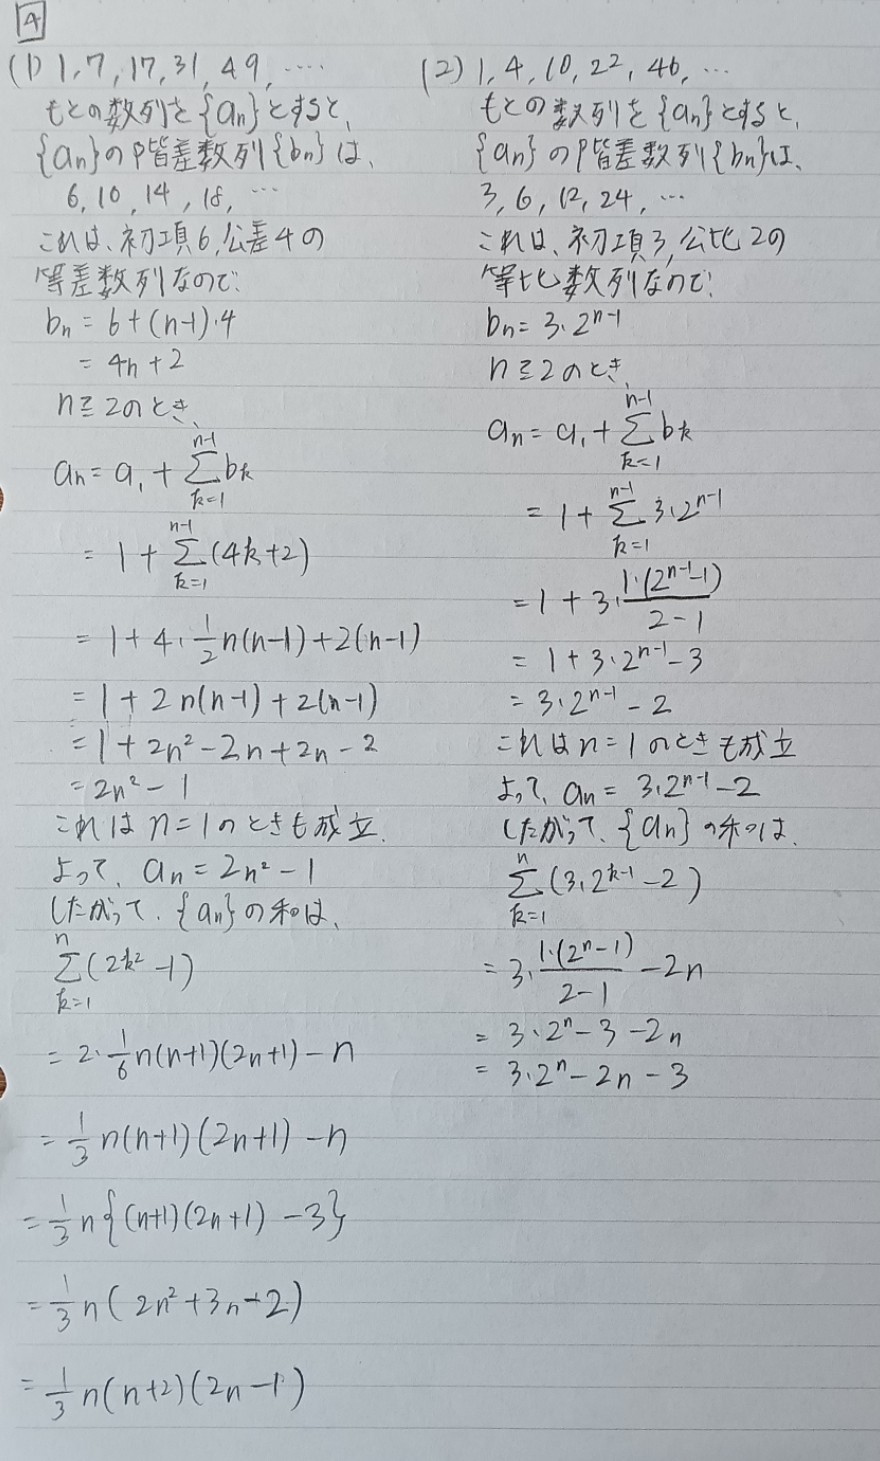 4
(1) 1, 7, 17, 31, 49, ‥‥
もとの数列を{an}とすると、
{an}の階差数列{bn}は、
6, 10, 14, 18, …
これは、初項6, 公差4の
等差数列なので、
bn = 6+(n-1)・4
= 4n+2
n≧2のとき、
an = a1 + Σ[k=1, n-1] bk
= 1 + Σ[k=1, n-1] (4k+2)
= 1 + 4・1/2 n(n-1) + 2(n-1)
= 1 + 2n(n-1) + 2(n-1)
= 1 + 2n² - 2n + 2n - 2
= 2n² - 1
これは n=1のときも成立.
よって、an = 2n² - 1
したがって、{an}の和は、
Σ[k=1, n] (2k² - 1)
= 2・1/6 n(n+1)(2n+1) - n
= 1/3 n(n+1)(2n+1) - n
= 1/3 n{(n+1)(2n+1) - 3}
= 1/3 n(2n² + 3n - 2)
= 1/3 n(n+2)(2n-1)
(2) 1, 4, 10, 22, 46, …
もとの数列を{an}とすると、
{an}の階差数列{bn}は、
3, 6, 12, 24, …
これは、初項3, 公比2の
等比数列なので、
bn = 3・2^(n-1)
n≧2のとき、
an = a1 + Σ[k=1, n-1] bk
= 1 + Σ[k=1, n-1] 3・2^(n-1)
= 1 + 3・1・(2^(n-1) - 1)/(2-1)
= 1 + 3・2^(n-1) - 3
= 3・2^(n-1) - 2
これはn=1のときも成立
よって、an = 3・2^(n-1) - 2
したがって、{an}の和は、
Σ[k=1, n] (3・2^(k-1) - 2)
= 3・1・(2^n - 1)/(2-1) - 2n
= 3・2^n - 3 - 2n
= 3・2^n - 2n - 3